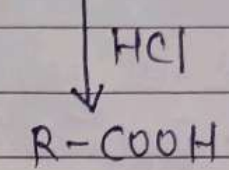 HCl
R-COOH